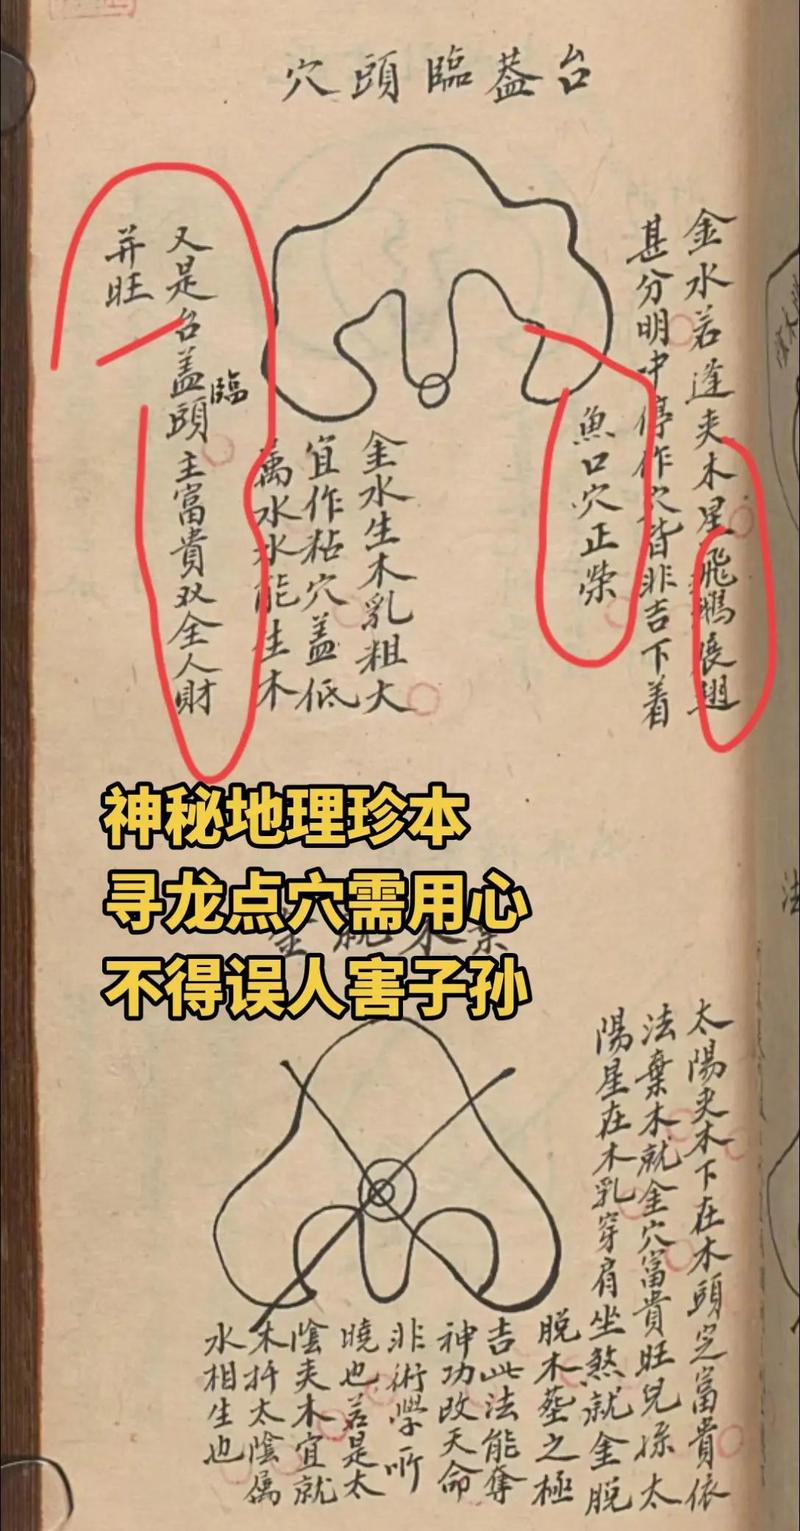 穴頭臨葢台
金水若逢夾木星飛鵬展翅
甚分明中停作穴皆非吉下着
魚口穴正荣
金水生木乳粗大
宜作粘穴葢低
萬水水能生木
又是台蓋臨頭主富貴双全人財
并旺
神秘地理珍本
寻龙点穴需用心
不得误人害子孙
太陽夾木下在木頭定富貴依
法棄木就金穴富貴旺兒孫太
陽星在木乳穿肩坐煞就金脱
脱木塟之極
吉此法能奪
神功改天命
非術學所
曉也若是太
陰夾木宜就
木扦太陰属
水相生也